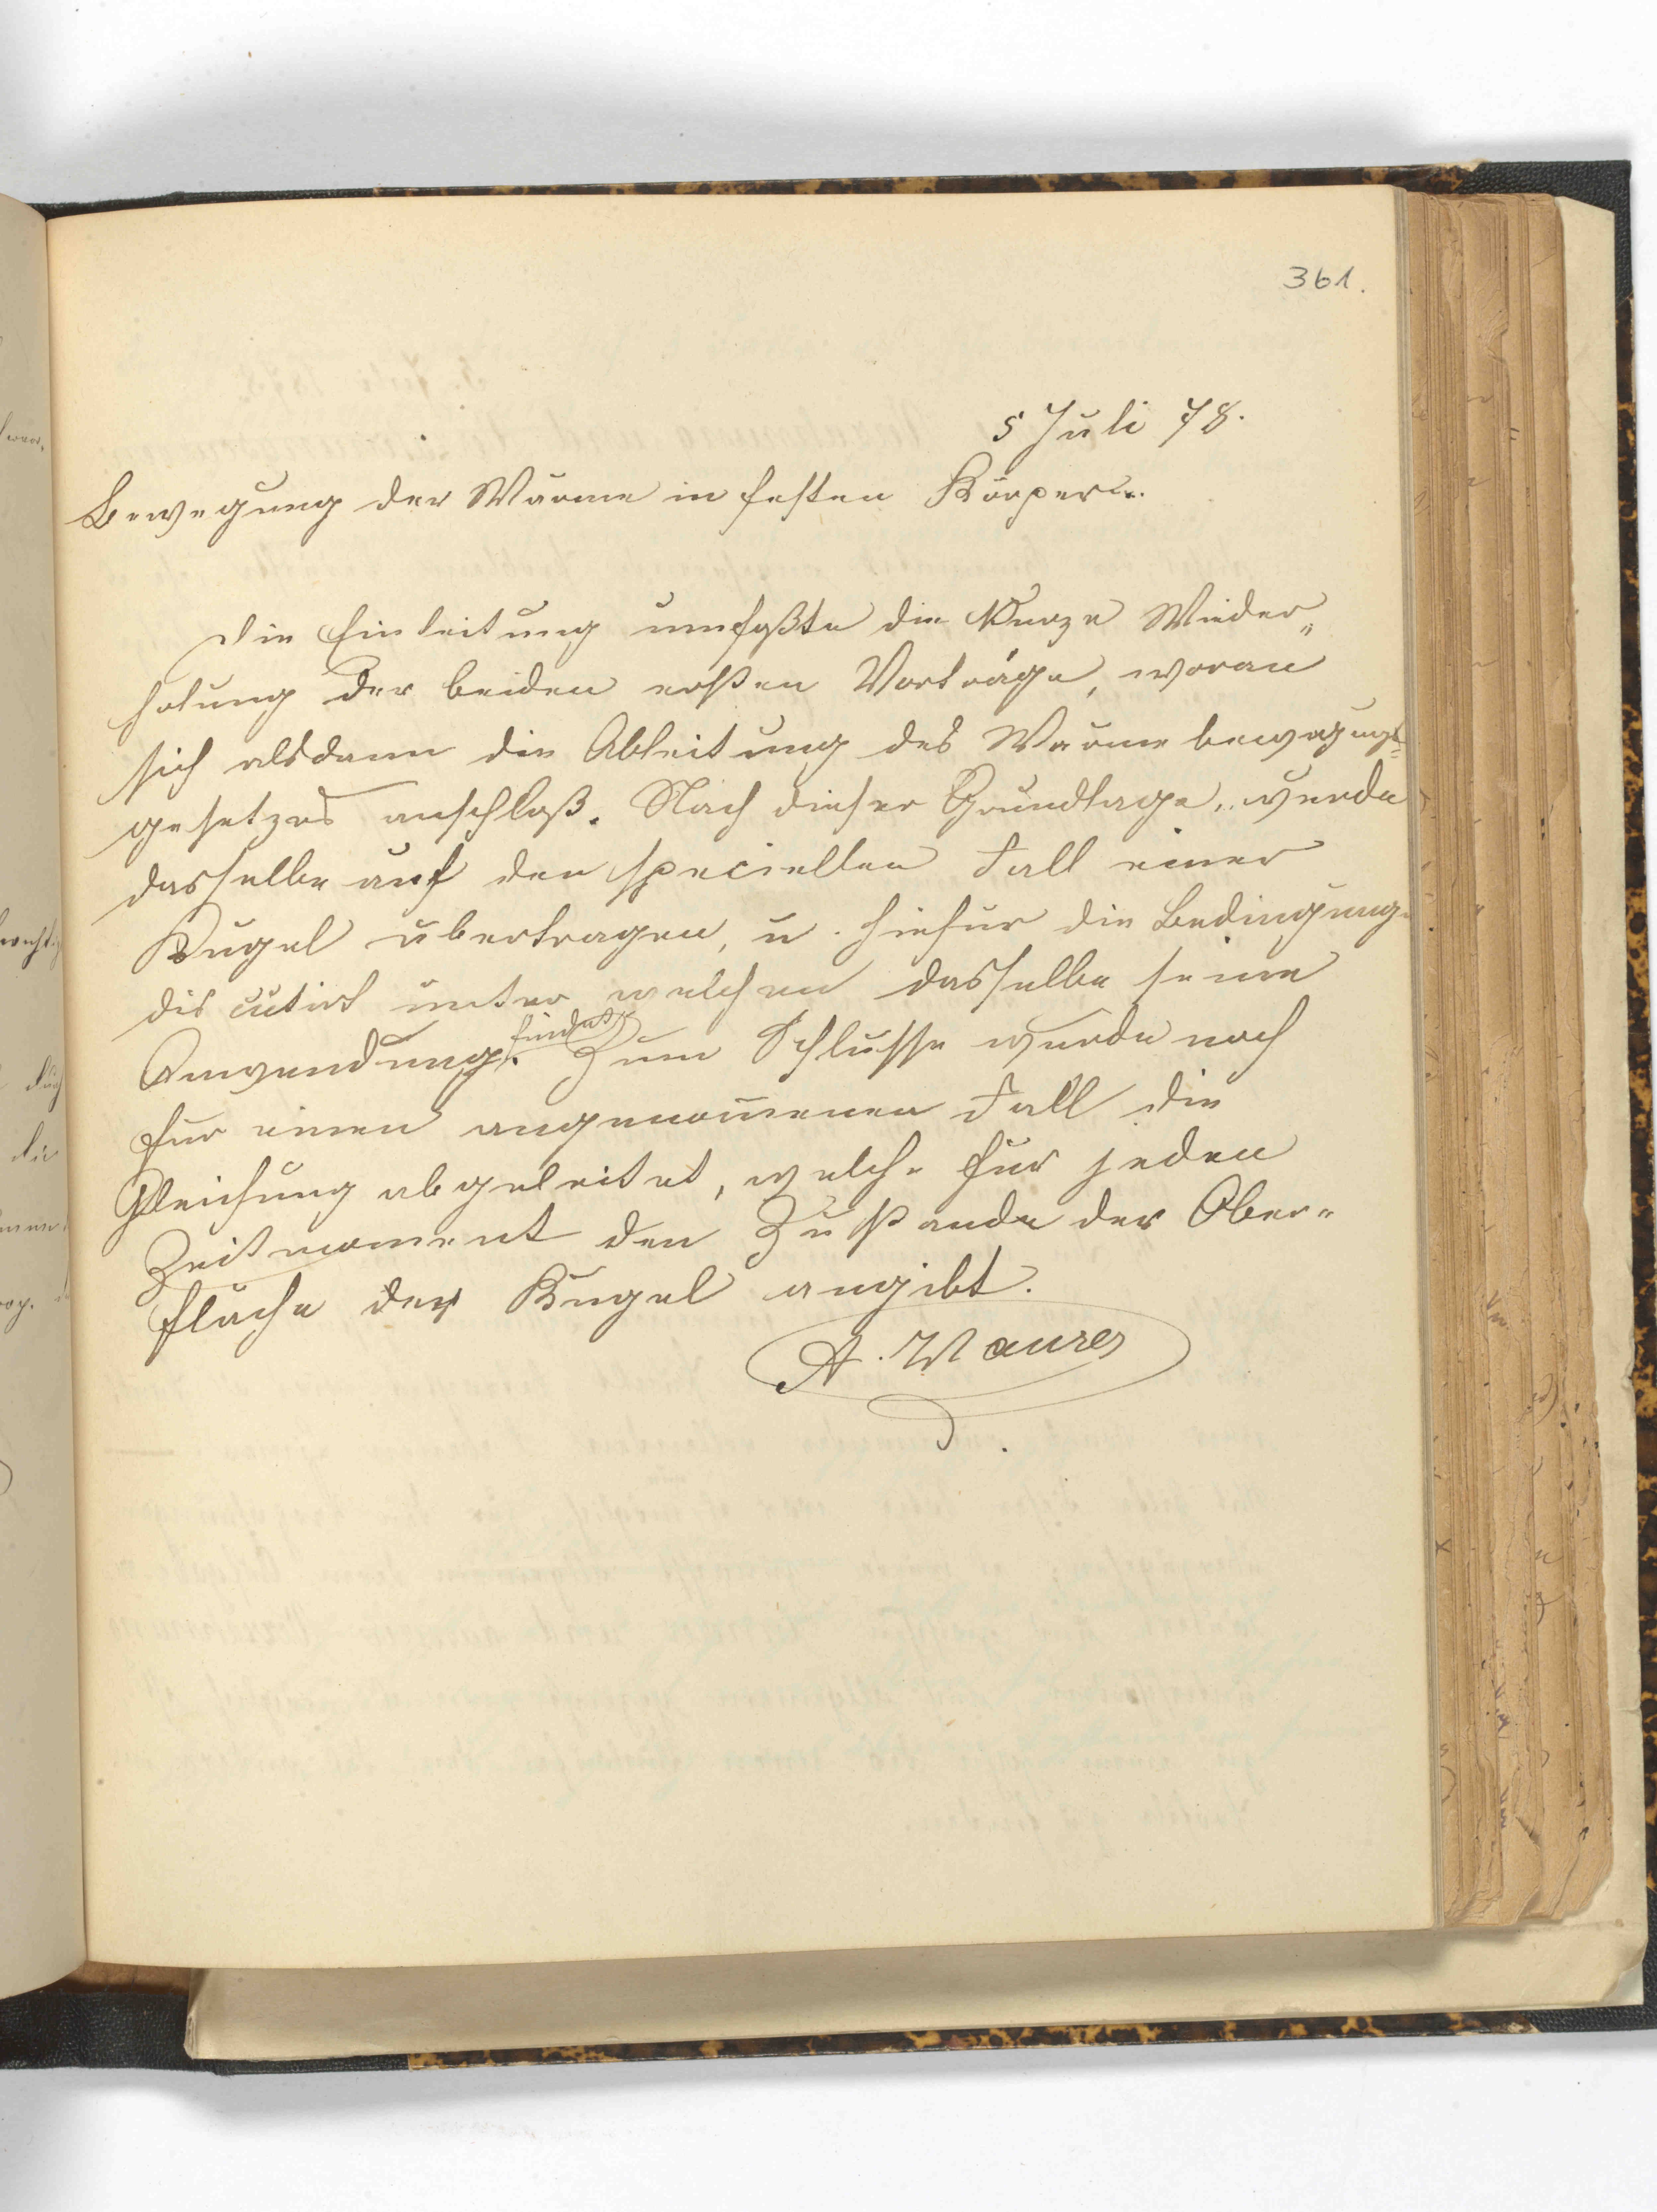 361.
5 Juli 78.
Bewegung der Wärme in festen Körpern.
Die Einleitung umfaßte die Kurze Wieder„
holung der beiden ersten Vorträge, woran
sich alsdann die Ableitung des Wärmebewegungs=
gesetzes anschloß. Nach dieser Grundlage, wurde
dasselbe auf den speciellen Fall einer
Kugel übertragen, u. hiefür die Bedingunge
discutirt unter welchen dasselbe seine
Anwendung findet. Zum Schlusse wurde noch
für einen angenom̅enen Fall die
Gleichung abgeleitet, welche für jeden
Zeitmoment den Zustande der Ober„
fläche der Kugel angibt.
A. Maurer